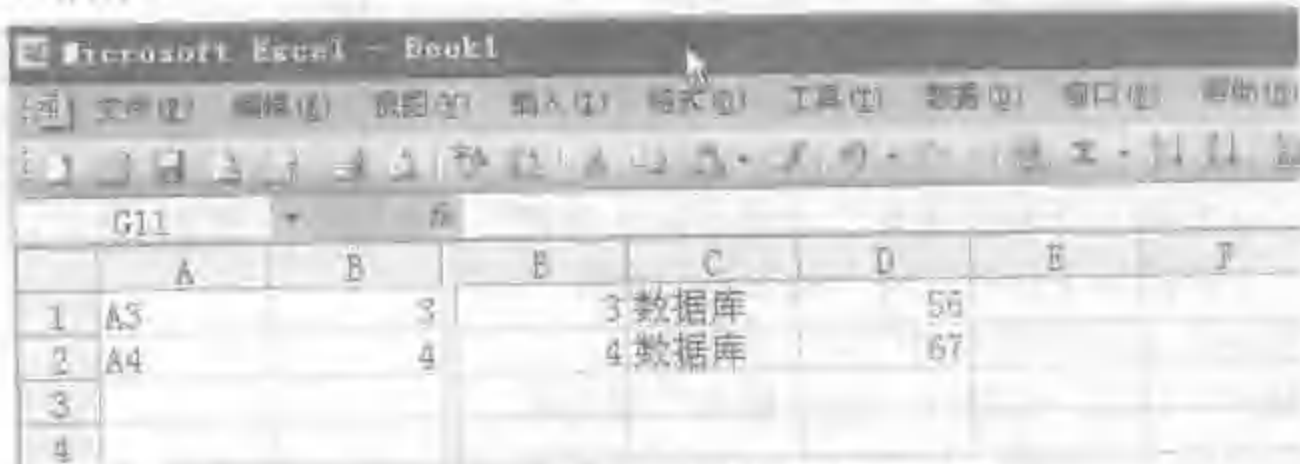 Microsoft Excel - Book1
文件(F) 编辑(E) 视图(V) 插入(I) 格式(O) 工具(T) 数据(D) 窗口(W) 帮助(H)
G11 fx
A B B C D E F
1 A3 3 3 数据库 56
2 A4 4 4 数据库 67
3
4